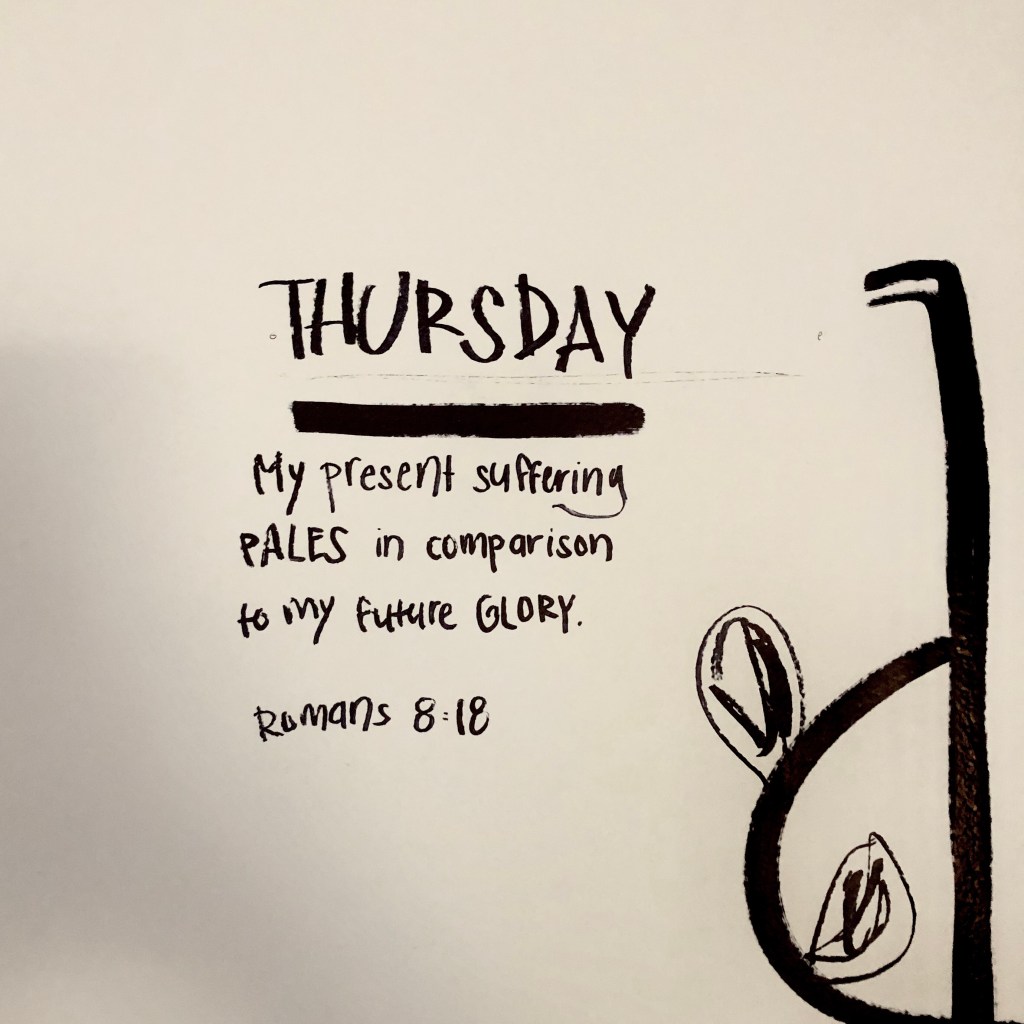 THURSDAY
My present suffering
PALES in comparison
to my future GLORY.
Romans 8:18
d